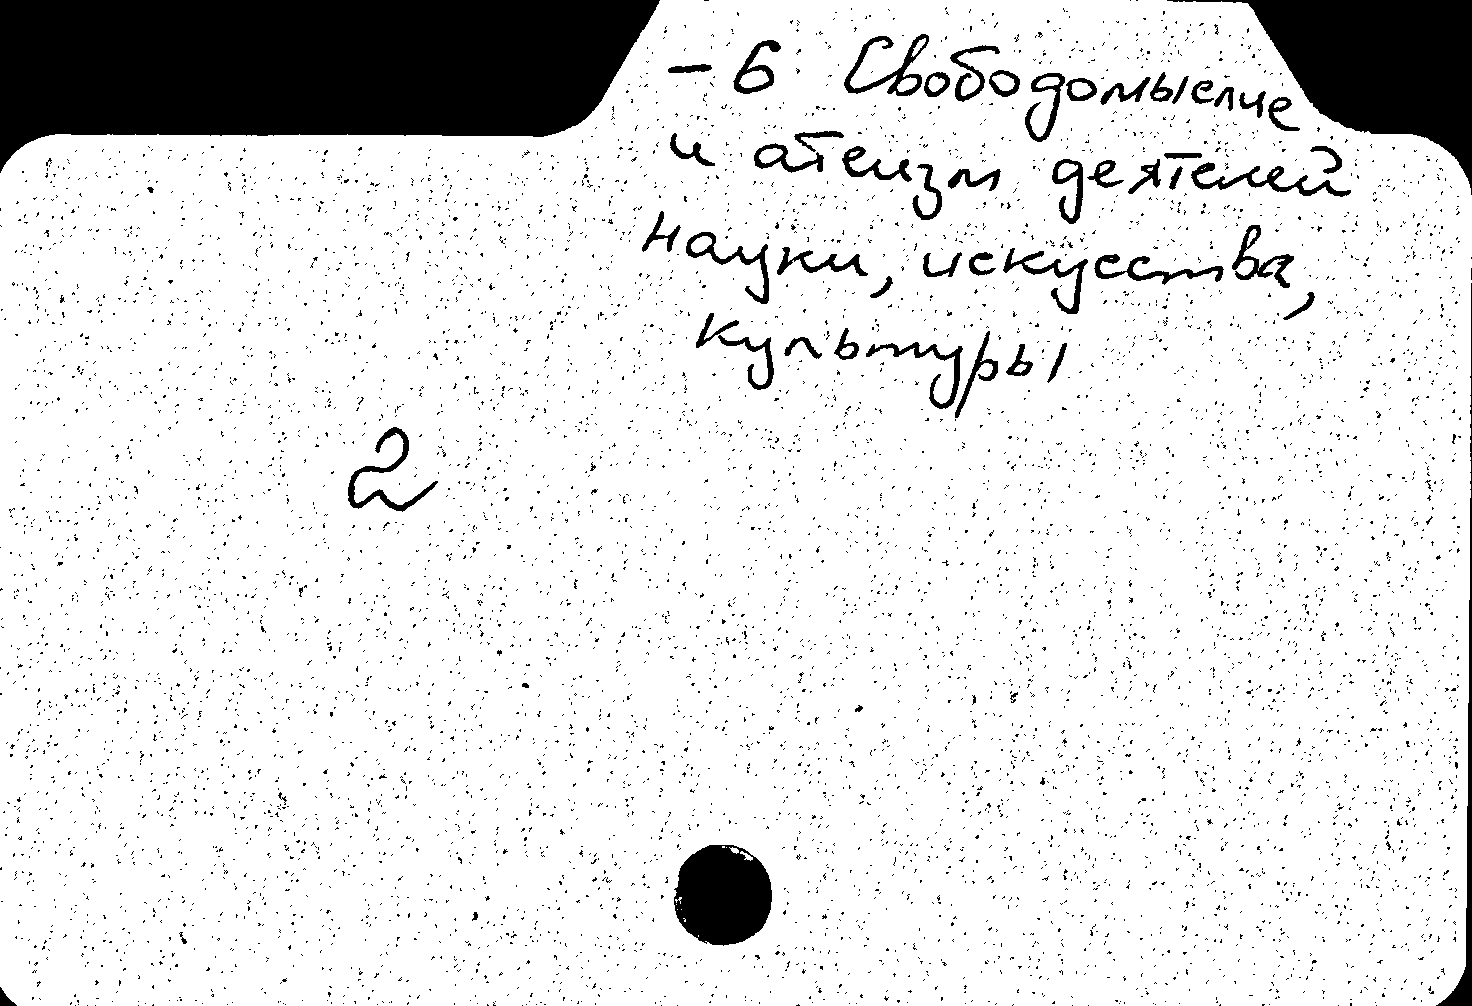 - 6 Свободомыслие
и атеизм деятелей
науки, искусства,
культуры
2